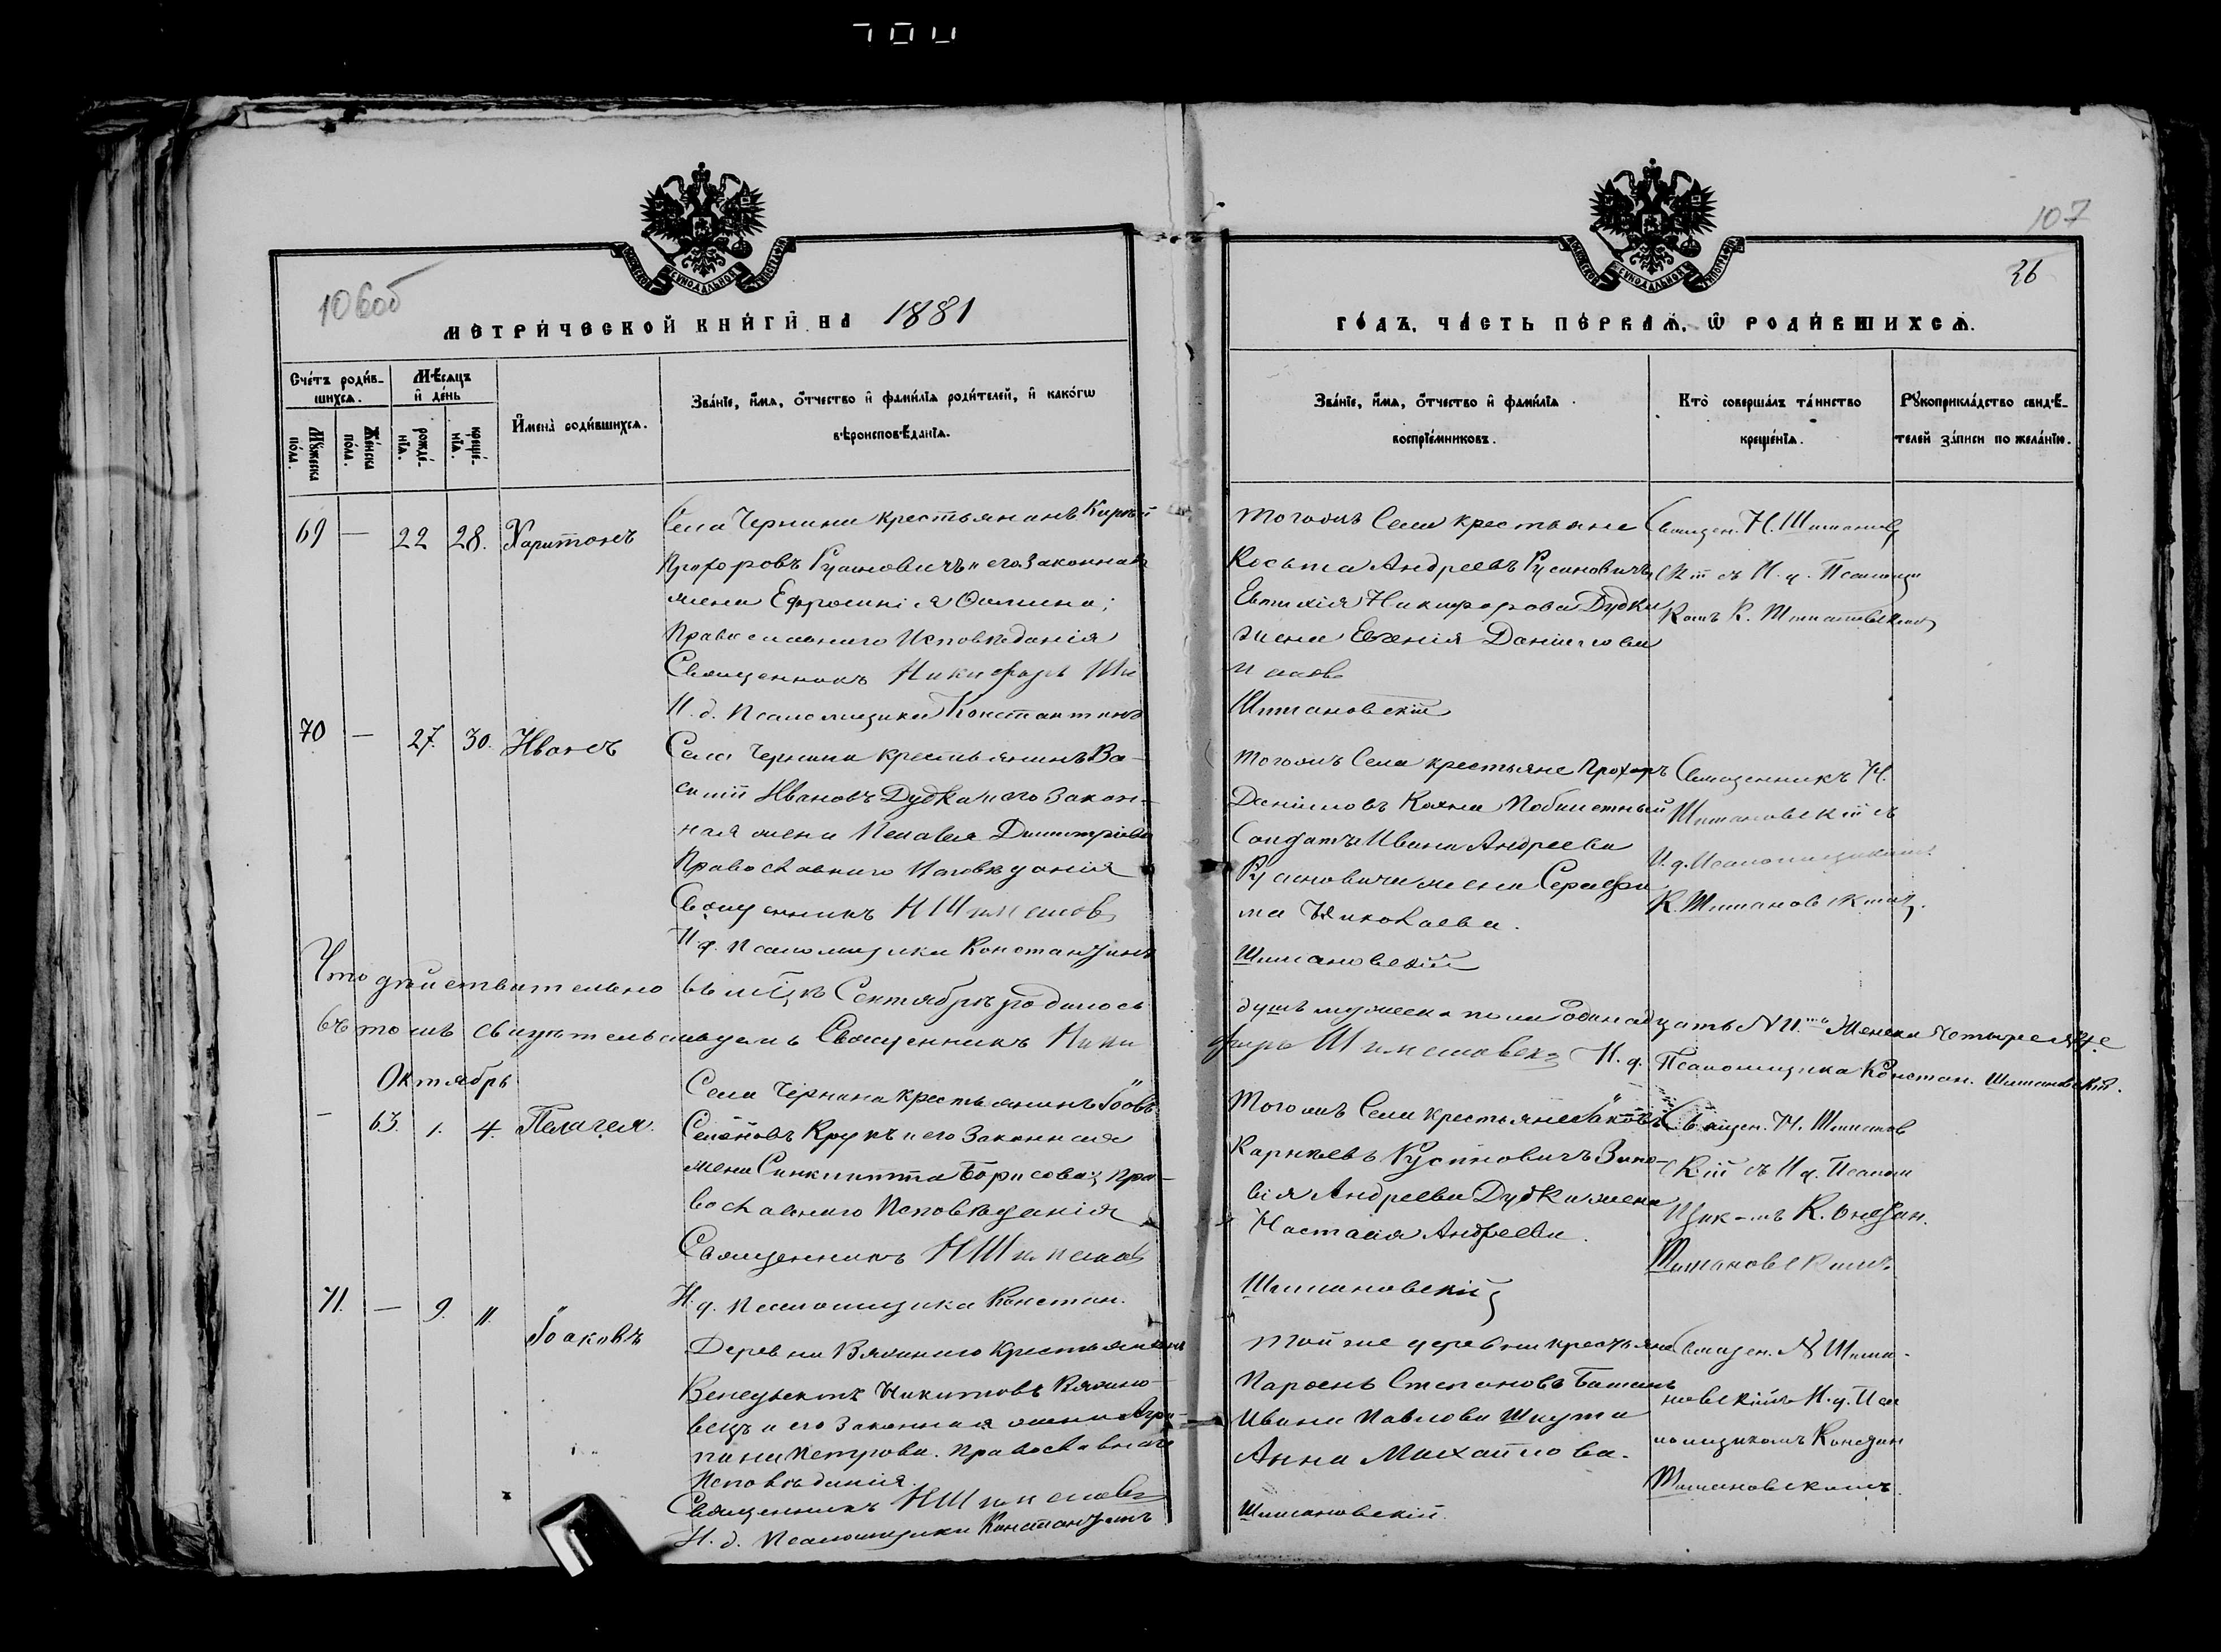 106об
107
36
МЕТРИЧЕСКОЙ КНИГИ НА 1881
ГОДЪ, ЧАСТЬ ПЕРВАЯ, Ѡ РОДИВШИХСЯ.
Счетъ родив-
шихся.
Мѣсяцъ
и день
Имена родившихся.
Званіе, имя, отчество и фамилія родителей, и какогω
вѣроисповѣданія.
Мужеска
пола.
Женска
пола.
рожде-
нія.
креще-
нія.
Званіе, имя, отчество и фамилія
воспріемниковъ.
Кто совершалъ таинство
крещенія.
Рукоприкладство свидѣ-
телей записи по желанію.
69 — 22 28. Харитонъ
Села Чернина крестьянинъ
Прохоровъ Русиновичъ и его законная
жена Ефросинія
Православнаго Исповѣданія
Священникъ Никифоръ Ши
И. д. Псаломщика Константинъ
Тогожъ Села крестьяне
Косьма Андреевъ Русиновичъ
Евтихія Никифорова Дудки
жена Евгенія Даніилова
Шимановскій
Священ. Н. Шиманов
скій съ И. д. Псаломщи
комъ К. Шимановскимъ
70 — 27. 30. Иванъ
Села Чернина крестьянинъ Ва-
силій Ивановъ Дудка и его закон-
ная жена Пелагея Димитріева
Православнаго Исповѣданія
Священникъ Н Шиманов
И. д. Псаломщика Константинъ
Тогожъ Села крестьяне Прохоръ
Даніиловъ Побилетный
Солдатъ Ивана Андреева
Русиновича жена Серафи
ма Николаева.
Шимановскій
Священникъ Н.
Шимановскій съ
И. д. Псаломщикомъ
К. Шимановскимъ.
Что дѣйствительно въ м-цѣ Сентябрѣ родилось
душъ мужеска пола одинадцать N 11. Женска четыре
въ томъ свидѣтельствуемъ Священникъ Ники
форъ Шимановск И. д. Псаломщика Констан. Шимановскій.
Октябрь
— 63. 1. 4. Пелагея.
Села Чернина крестьянинъ Іовъ
Семёновъ Крукъ и его законная
жена Синклития Борисова Пра-
вославнаго Исповѣданія
Священникъ Н Шиманов
И. д. Псаломщика Констан.
Тогожъ Села крестьяне Іаковъ
Карнѣевъ Русиновичъ Зино-
вія Андреева Дудки жена
Настасія Андреева.
Шимановскій
Священ. Н. Шиманов
скій съ И. д. Псалом
щик-мъ К.
Шимановскимъ.
71. — 9. 11. Іоаковъ
Деревни крестьянинъ
Венедиктъ Никитовъ
вецъ и его законная жена Агри-
пина Петрова. Православнаго
Исповѣданія.
Священникъ Н Шиманов
И. д. Псаломщика Константинъ
Той же деревни крестьяне
Парѳенъ Степановъ
Ивана Павлова Шкута
Анна Михайлова.
Шимановскій.
Священ. Н Шима-
новскій съ И. д. Пса
ломщикомъ Констан
Шимановскимъ.